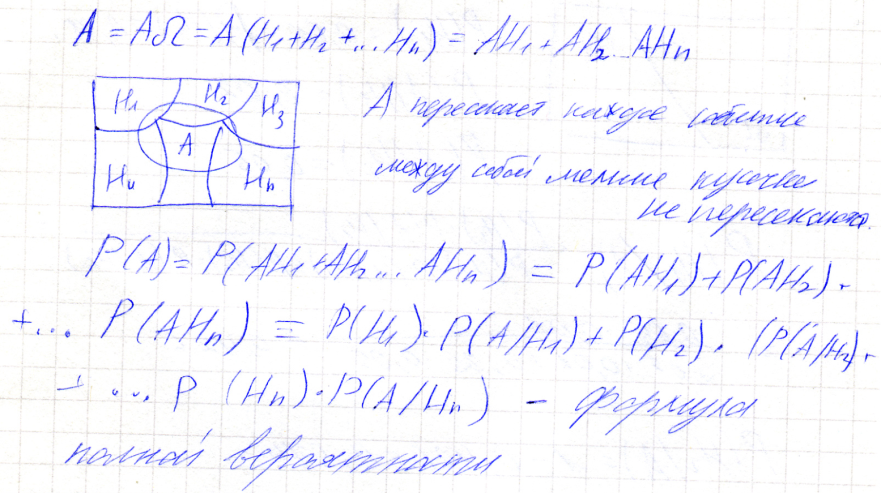 A = AΩ = A(H1+H2+...Hn) = AH1+AH2...AHn
H1 H2 H3
A
Hn Hn
А пересекает каждое событие
между собой мелкие кусочки
не пересекаются.
P(A) = P(AH1+AH2...AHn) = P(AH1)+P(AH2)+
+... P(AHn) = P(H1)·P(A/H1)+P(H2)·(P(A/H2)+
+ ... P(Hn)·P(A/Hn) - формула
полной вероятности